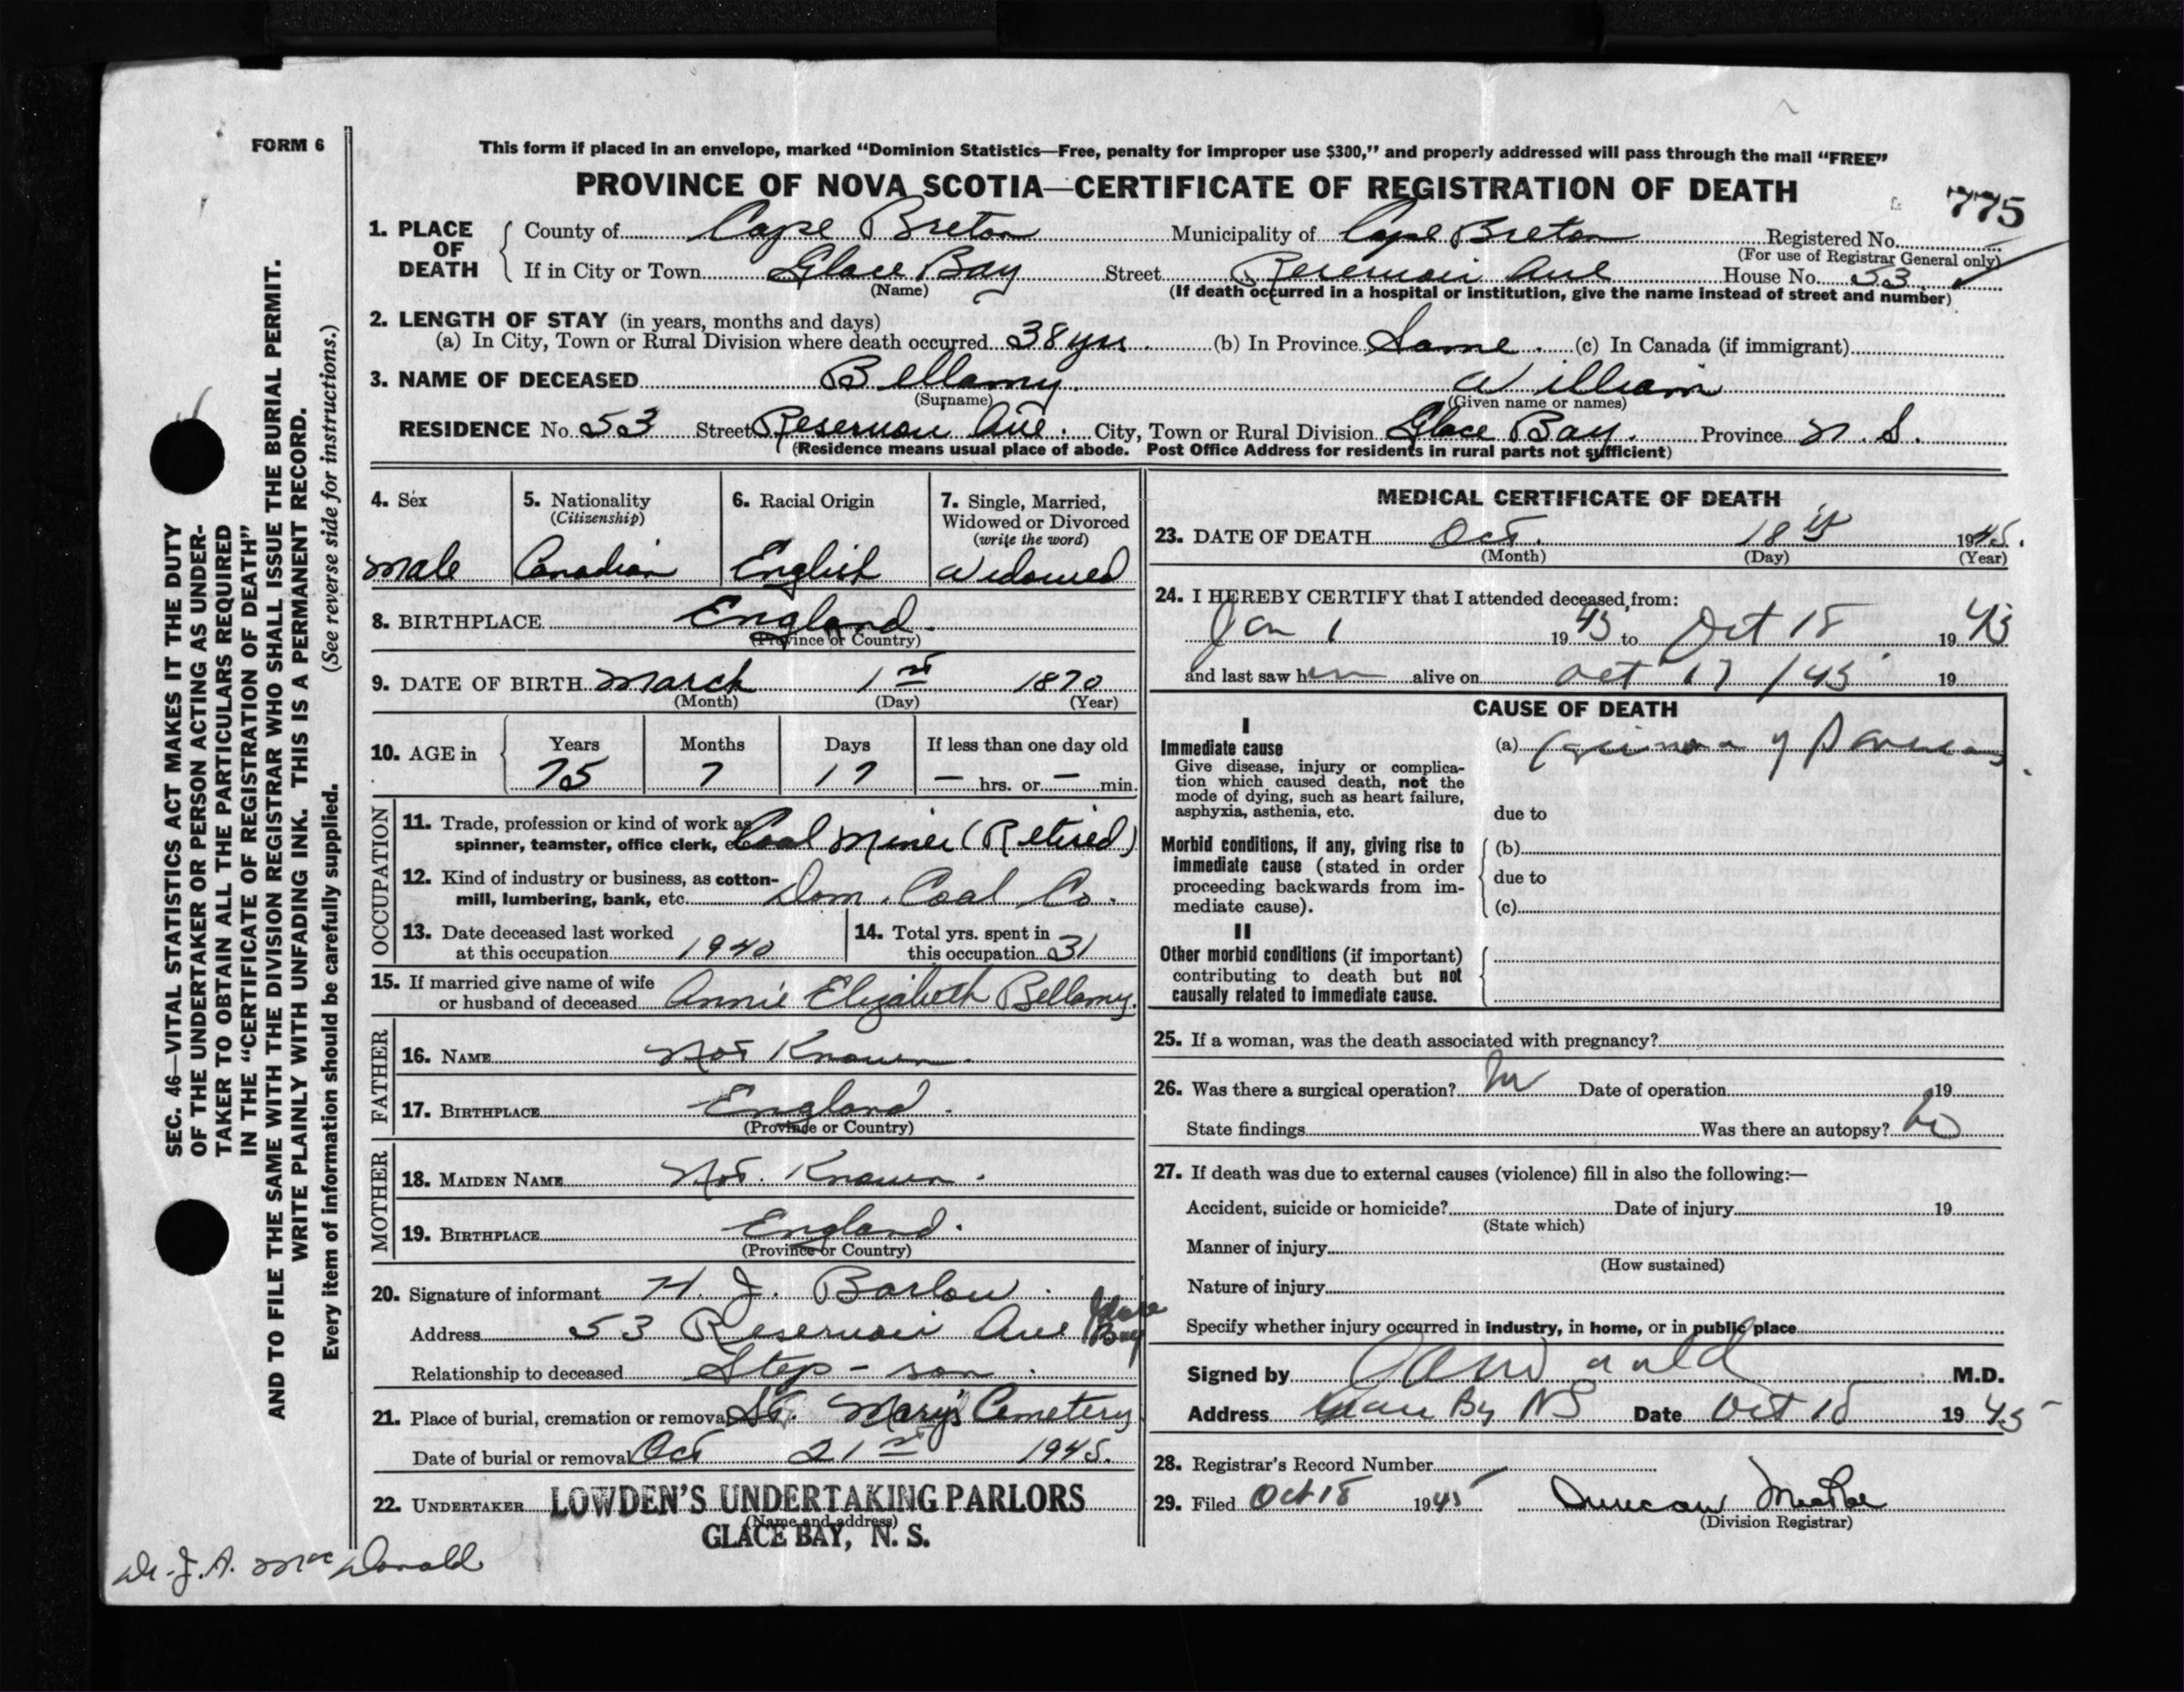 FORM 6
This form if placed in an envelope, marked “Dominion Statistics—Free, penalty for improper use $300,” and properly addressed will pass through the mail “FREE”
PROVINCE OF NOVA SCOTIA—CERTIFICATE OF REGISTRATION OF DEATH
775
1. PLACE OF DEATH
County of Cape Breton Municipality of Cape Breton Registered No.
(For use of Registrar General only)
If in City or Town Glace Bay Street Reservoir Ave House No. 53
(Name)
(If death occurred in a hospital or institution, give the name instead of street and number)
2. LENGTH OF STAY (in years, months and days)
(a) In City, Town or Rural Division where death occurred 38 yrs (b) In Province Same. (c) In Canada (if immigrant)
3. NAME OF DECEASED Bellamy William
(Surname) (Given name or names)
RESIDENCE No. 53 Street Reservoir Ave. City, Town or Rural Division Glace Bay. Province N. S.
(Residence means usual place of abode. Post Office Address for residents in rural parts not sufficient)
4. Sex
Male
5. Nationality
(Citizenship)
Canadian
6. Racial Origin
English
7. Single, Married,
Widowed or Divorced
(write the word)
Widowed
8. BIRTHPLACE England.
(Province or Country)
9. DATE OF BIRTH March 1st 1870
(Month) (Day) (Year)
10. AGE in
Years Months Days If less than one day old
75 7 17 — hrs. or — min.
OCCUPATION
11. Trade, profession or kind of work as
spinner, teamster, office clerk, Coal Miner (Retired)
12. Kind of industry or business, as cotton-
mill, lumbering, bank, etc. Dom. Coal Co.
13. Date deceased last worked
at this occupation 1940
14. Total yrs. spent in
this occupation 31
15. If married give name of wife
or husband of deceased Annie Elizabeth Bellamy.
FATHER
16. NAME Not Known.
17. BIRTHPLACE England.
(Province or Country)
MOTHER
18. MAIDEN NAME Not. Known.
19. BIRTHPLACE England.
(Province or Country)
20. Signature of informant H. J. Barlow.
Address 53 Reservoir Ave Glace Bay
Relationship to deceased Step-son.
21. Place of burial, cremation or removal St. Mary's Cemetery
Date of burial or removal Oct 21st 1945.
22. UNDERTAKER LOWDEN'S UNDERTAKING PARLORS
(Name and address)
GLACE BAY, N. S.
MEDICAL CERTIFICATE OF DEATH
23. DATE OF DEATH Oct. 18th 1945.
(Month) (Day) (Year)
24. I HEREBY CERTIFY that I attended deceased from:
Jan 1 1945 to Oct 18 1945
and last saw him alive on Oct 17 /45 19
CAUSE OF DEATH
I
Immediate cause
Give disease, injury or complica-
tion which caused death, not the
mode of dying, such as heart failure,
asphyxia, asthenia, etc.
(a)
due to
Morbid conditions, if any, giving rise to
immediate cause (stated in order
proceeding backwards from im-
mediate cause).
(b)
due to
(c)
II
Other morbid conditions (if important)
contributing to death but not
causally related to immediate cause.
25. If a woman, was the death associated with pregnancy?
26. Was there a surgical operation? No Date of operation 19
State findings Was there an autopsy? No
27. If death was due to external causes (violence) fill in also the following:—
Accident, suicide or homicide? Date of injury 19
(State which)
Manner of injury
(How sustained)
Nature of injury
Specify whether injury occurred in industry, in home, or in public place
Signed by M.D.
Address Glace Bay NS Date Oct 18 1945
28. Registrar's Record Number
29. Filed Oct 18 1945 Duncan
(Division Registrar)
SEC. 46—VITAL STATISTICS ACT MAKES IT THE DUTY
OF THE UNDERTAKER OR PERSON ACTING AS UNDER-
TAKER TO OBTAIN ALL THE PARTICULARS REQUIRED
IN THE “CERTIFICATE OF REGISTRATION OF DEATH”
AND TO FILE THE SAME WITH THE DIVISION REGISTRAR WHO SHALL ISSUE THE BURIAL PERMIT.
WRITE PLAINLY WITH UNFADING INK. THIS IS A PERMANENT RECORD.
Every item of information should be carefully supplied. (See reverse side for instructions.)
Dr. J. A. MacDonald